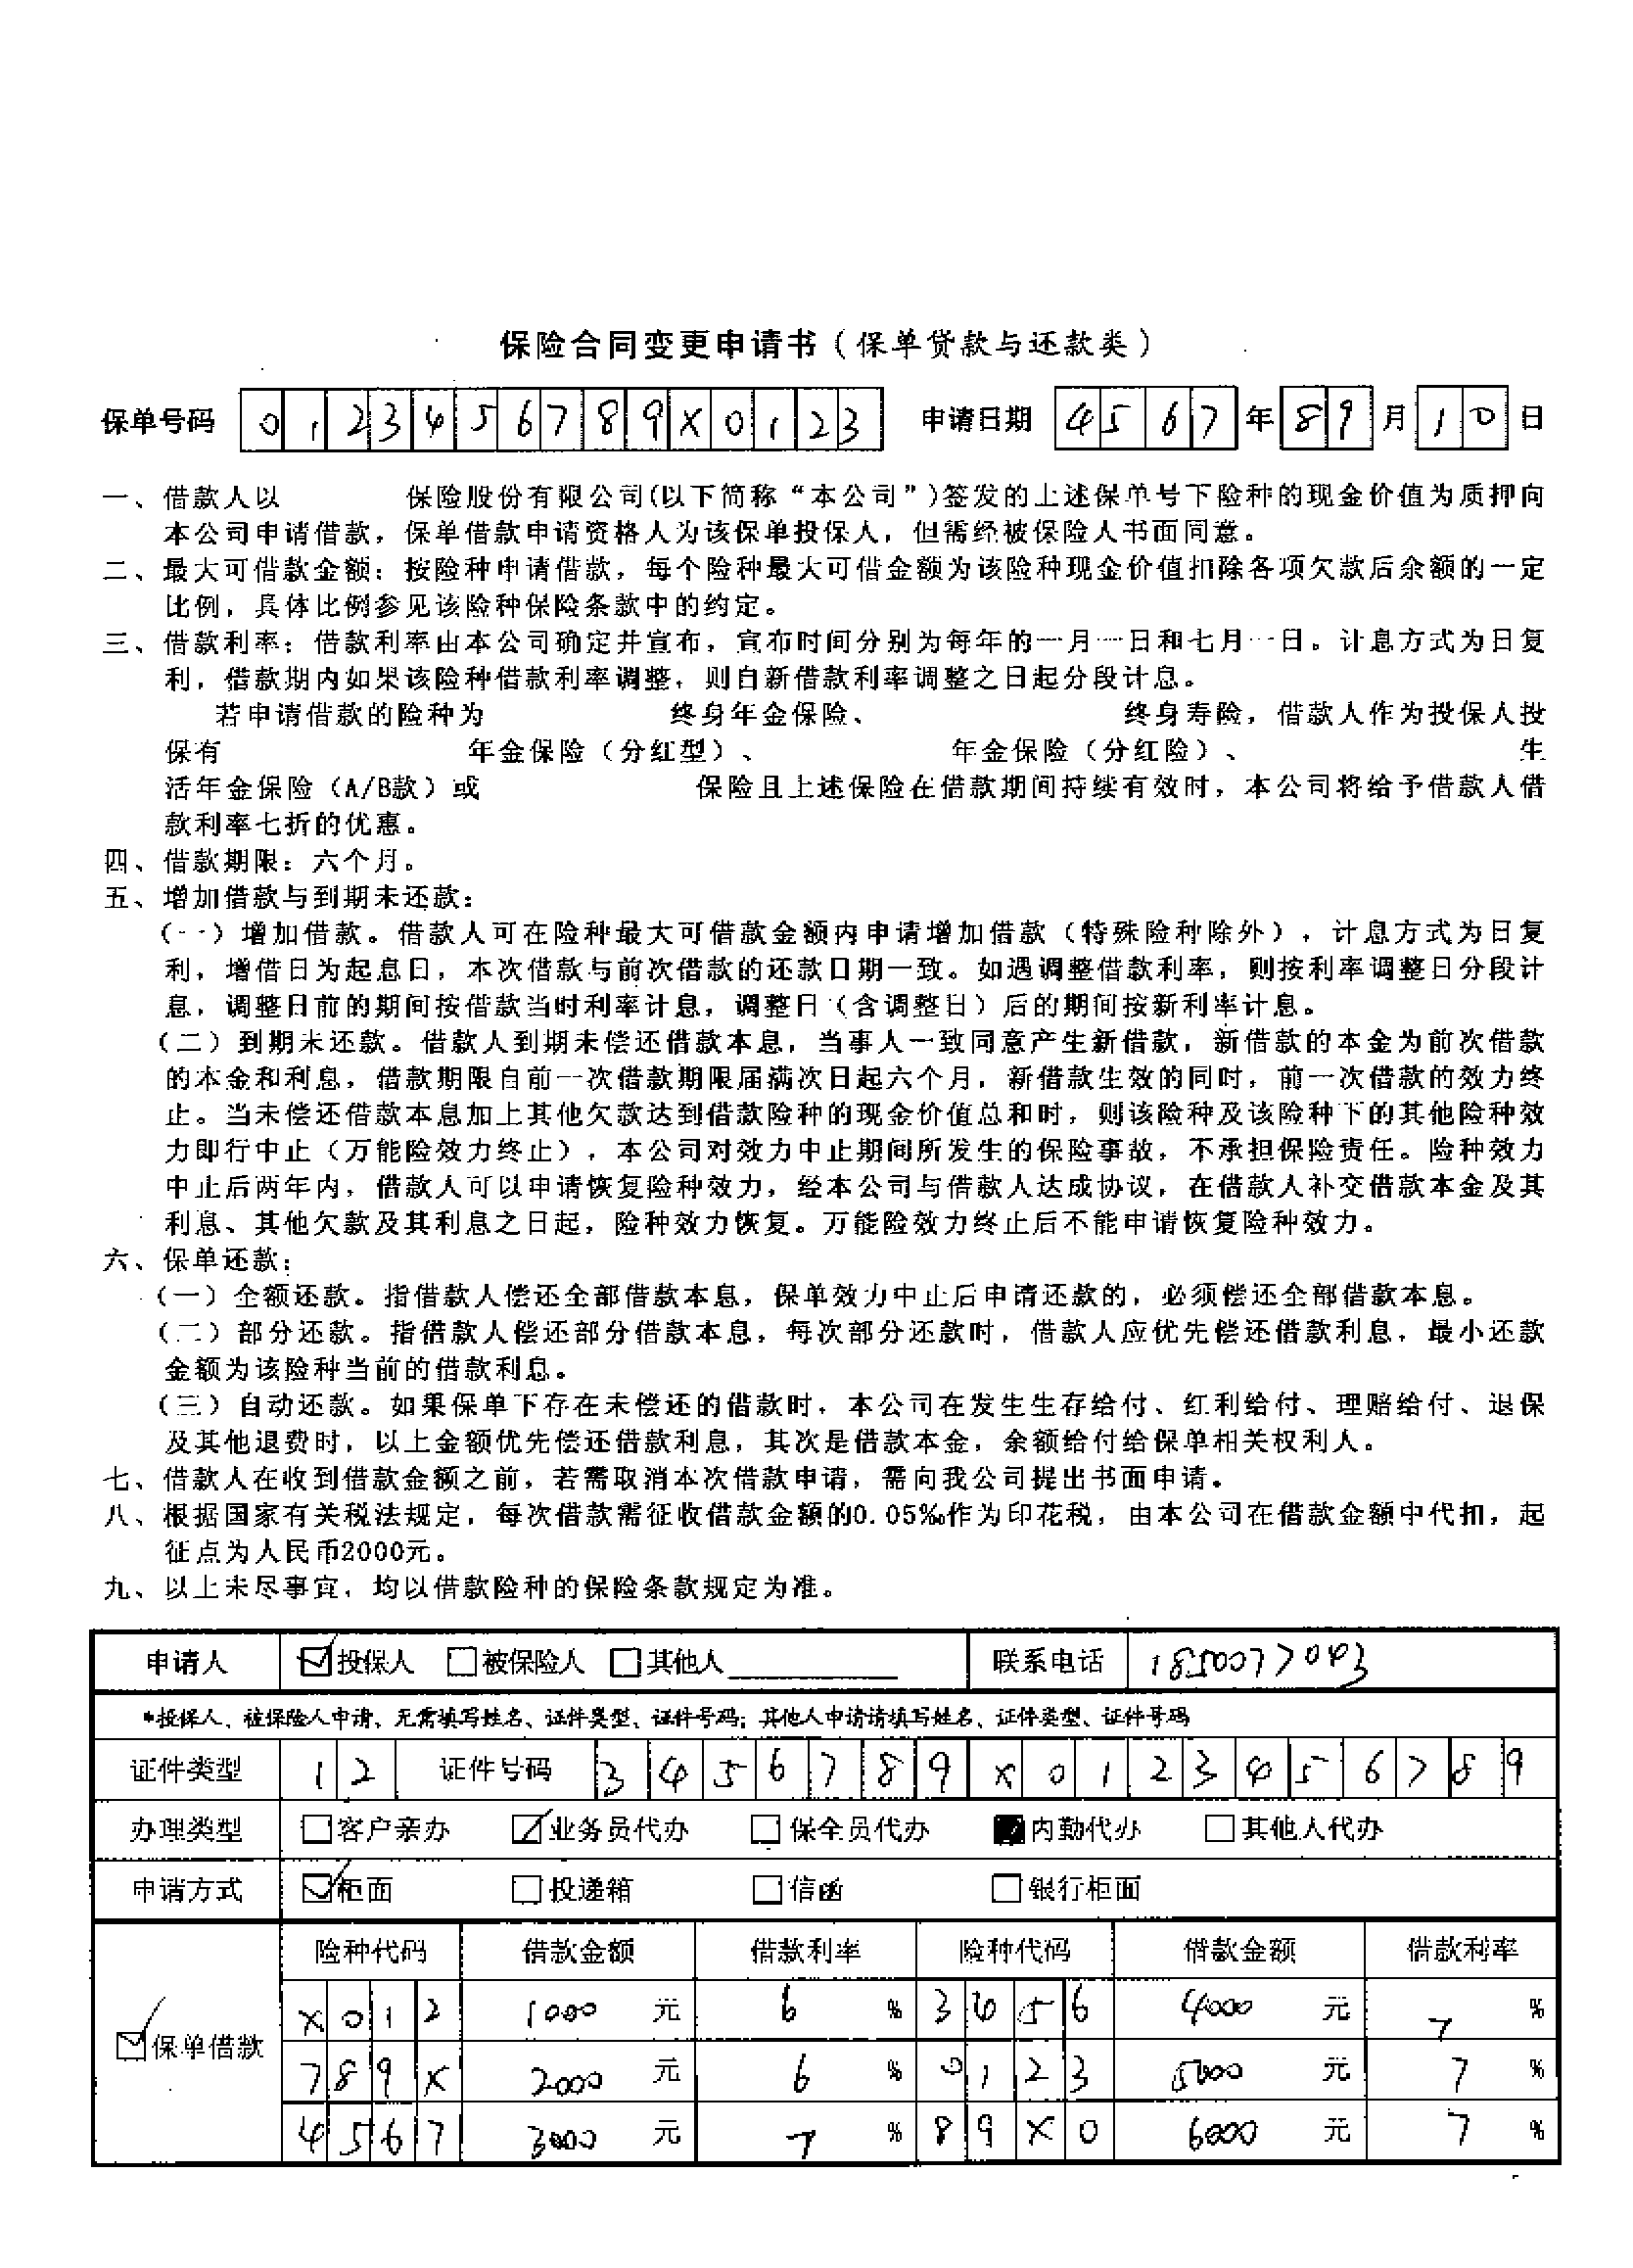 保险合同变更申请书（保单贷款与还款类）
保单号码 0 1 2 3 4 5 6 7 8 9 X 0 1 2 3 申请日期 4 5 6 7 年 8 9 月 1 0 日
一、借款人以 保险股份有限公司(以下简称“本公司”)签发的上述保单号下险种的现金价值为质押向
本公司申请借款，保单借款申请资格人为该保单投保人，但需经被保险人书面同意。
二、最大可借款金额：按险种申请借款，每个险种最大可借金额为该险种现金价值扣除各项欠款后余额的一定
比例，具体比例参见该险种保险条款中的约定。
三、借款利率：借款利率由本公司确定并宣布，宣布时间分别为每年的一月一日和七月一日。计息方式为日复
利，借款期内如果该险种借款利率调整，则自新借款利率调整之日起分段计息。
若申请借款的险种为 终身年金保险、 终身寿险，借款人作为投保人投
保有 年金保险（分红型）、 年金保险（分红险）、 生
活年金保险（A/B款）或 保险且上述保险在借款期间持续有效时，本公司将给予借款人借
款利率七折的优惠。
四、借款期限：六个月。
五、增加借款与到期未还款：
（一）增加借款。借款人可在险种最大可借款金额内申请增加借款（特殊险种除外），计息方式为日复
利，增借日为起息日，本次借款与前次借款的还款日期一致。如遇调整借款利率，则按利率调整日分段计
息，调整日前的期间按借款当时利率计息，调整日（含调整日）后的期间按新利率计息。
（二）到期未还款。借款人到期未偿还借款本息，当事人一致同意产生新借款，新借款的本金为前次借款
的本金和利息，借款期限自前一次借款期限届满次日起六个月，新借款生效的同时，前一次借款的效力终
止。当未偿还借款本息加上其他欠款达到借款险种的现金价值总和时，则该险种及该险种下的其他险种效
力即行中止（万能险效力终止），本公司对效力中止期间所发生的保险事故，不承担保险责任。险种效力
中止后两年内，借款人可以申请恢复险种效力，经本公司与借款人达成协议，在借款人补交借款本金及其
利息、其他欠款及其利息之日起，险种效力恢复。万能险效力终止后不能申请恢复险种效力。
六、保单还款：
（一）全额还款。指借款人偿还全部借款本息，保单效力中止后申请还款的，必须偿还全部借款本息。
（二）部分还款。指借款人偿还部分借款本息，每次部分还款时，借款人应优先偿还借款利息，最小还款
金额为该险种当前的借款利息。
（三）自动还款。如果保单下存在未偿还的借款时，本公司在发生生存给付、红利给付、理赔给付、退保
及其他退费时，以上金额优先偿还借款利息，其次是借款本金，余额给付给保单相关权利人。
七、借款人在收到借款金额之前，若需取消本次借款申请，需向我公司提出书面申请。
八、根据国家有关税法规定，每次借款需征收借款金额的0.05‰作为印花税，由本公司在借款金额中代扣，起
征点为人民币2000元。
九、以上未尽事宜，均以借款险种的保险条款规定为准。
申请人 ☑投保人 □被保险人 □其他人 联系电话 1850077043
*投保人、被保险人申请、无需填写姓名、证件类型、证件号码；其他人申请请填写姓名、证件类型、证件号码
证件类型 1 2 证件号码 3 4 5 6 7 8 9 X 0 1 2 3 4 5 6 7 8 9
办理类型 □客户亲办 ☑业务员代办 □保全员代办 ■内勤代办 □其他人代办
申请方式 ☑柜面 □投递箱 □信函 □银行柜面
险种代码 借款金额 借款利率 险种代码 借款金额 借款利率
X 0 1 2 1000 元 6 % 3 4 5 6 4000 元 7 %
☑保单借款
7 8 9 X 2000 元 6 % 0 1 2 3 5000 元 7 %
4 5 6 7 3000 元 7 % 8 9 X 0 6000 元 7 %